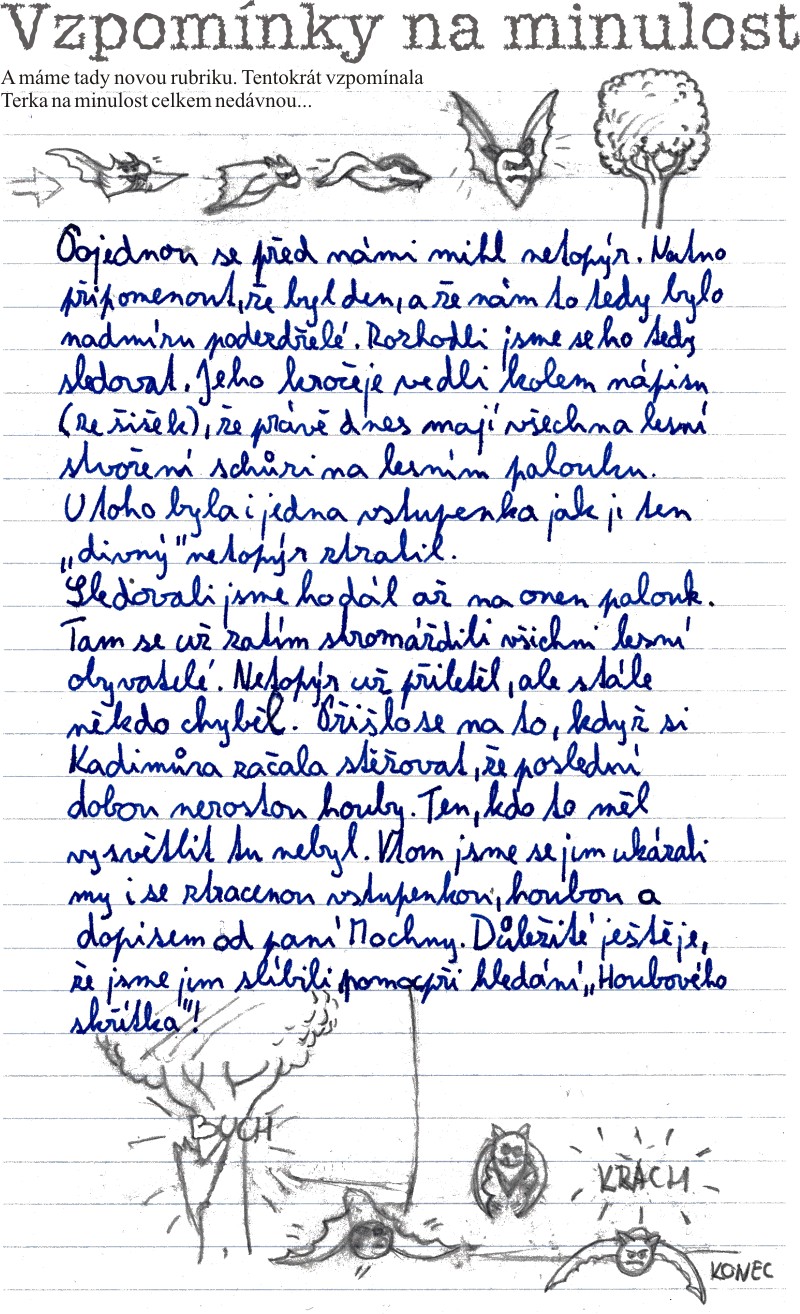 Vzpomínky na minulost
A máme tady novou rubriku. Tentokrát vzpomínala
Terka na minulost celkem nedávnou...
Pojednou se před námi mihl netopýr. Nutno
připomenout, že byl den, a že nám to tedy bylo
nadmíru podezdřelé. Rozhodli jsme se ho tedy
sledovat. Jeho kročeje vedli kolem nápisu
(ze šišek), že právě dnes mají všechna lesní
stvoření schůzi na lesním palouku.
U toho byla i jedna vstupenka jak ji ten
„divný" netopýr ztratil.
Sledovali jsme ho dál až na onen palouk.
Tam se už zatím stromáždili všichni lesní
obyvatelé. Netopýr už přiletěl, ale stále
někdo chyběl. Přišlo se na to, když si
Kadimůra začala stěžovat, že poslední
dobou nerostou houby. Ten, kdo to měl
vysvětlit tu nebyl. Vtom jsme se jim ukázali
my i se ztracenou vstupenkou, houbou a
dopisem od paní Mochny. Důležité ještě je,
že jsme jim slíbili pomoc při hledání „Houbového
skřítka"!
BUCH
KRACH
KONEC